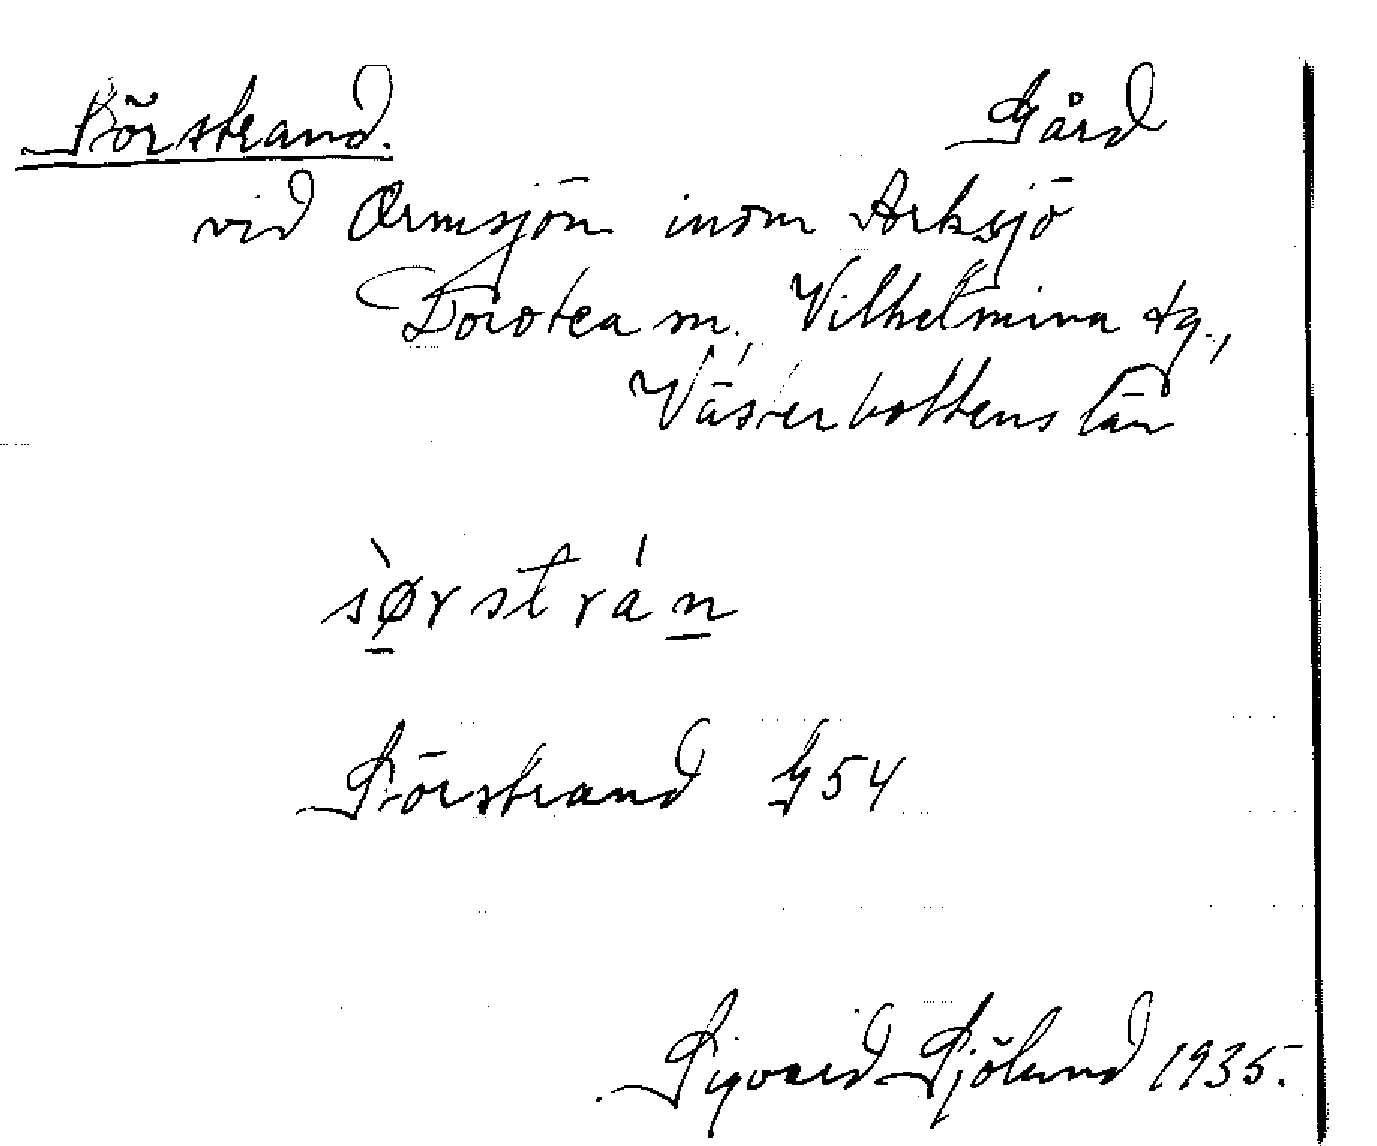 Sörstrand. Gård
vid Ormsjön inom Arksjö
Dorotea sn., Vilhelmina tg.,
Västerbottens län
sø̱̀rstráṉ
Sörstrand G 54
Sigvard Sjölund 1935.